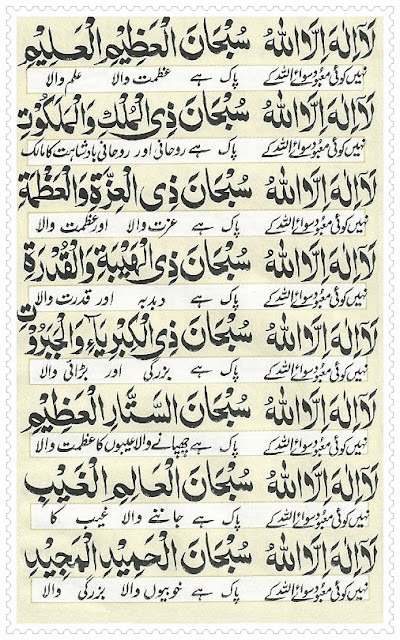 لَآ اِلٰهَ اِلَّا اللهُ سُبْحَانَ الْعَظِيْمِ الْعَلِيْمِ
نہیں کوئی معبود سوائے اللہ کے پاک ہے عظمت والا علم والا
لَآ اِلٰهَ اِلَّا اللهُ سُبْحَانَ ذِي الْمُلْكِ وَالْمَلَكُوْتِ
نہیں کوئی معبود سوائے اللہ کے پاک ہے روحانی اور روحانی بادشاہت کا مالک
لَآ اِلٰهَ اِلَّا اللهُ سُبْحَانَ ذِي الْعِزَّةِ وَالْعَظَمَةِ
نہیں کوئی معبود سوائے اللہ کے پاک ہے عزت والا اور عظمت والا
لَآ اِلٰهَ اِلَّا اللهُ سُبْحَانَ ذِي الْهَيْبَةِ وَالْقُدْرَةِ
نہیں کوئی معبود سوائے اللہ کے پاک ہے دبدبہ اور قدرت والا
لَآ اِلٰهَ اِلَّا اللهُ سُبْحَانَ ذِي الْكِبْرِيَآءِ وَالْجَبَرُوْتِ
نہیں کوئی معبود سوائے اللہ کے پاک ہے بزرگی اور بڑائی والا
لَآ اِلٰهَ اِلَّا اللهُ سُبْحَانَ السَّتَّارِ الْعَظِيْمِ
نہیں کوئی معبود سوائے اللہ کے پاک ہے چھپانے والا عیبوں کا عظمت والا
لَآ اِلٰهَ اِلَّا اللهُ سُبْحَانَ الْعَالِمِ الْغَيْبِ
نہیں کوئی معبود سوائے اللہ کے پاک ہے جاننے والا غیب کا
لَآ اِلٰهَ اِلَّا اللهُ سُبْحَانَ الْحَمِيْدِ الْمَجِيْدِ
نہیں کوئی معبود سوائے اللہ کے پاک ہے خوبیوں والا بزرگی والا